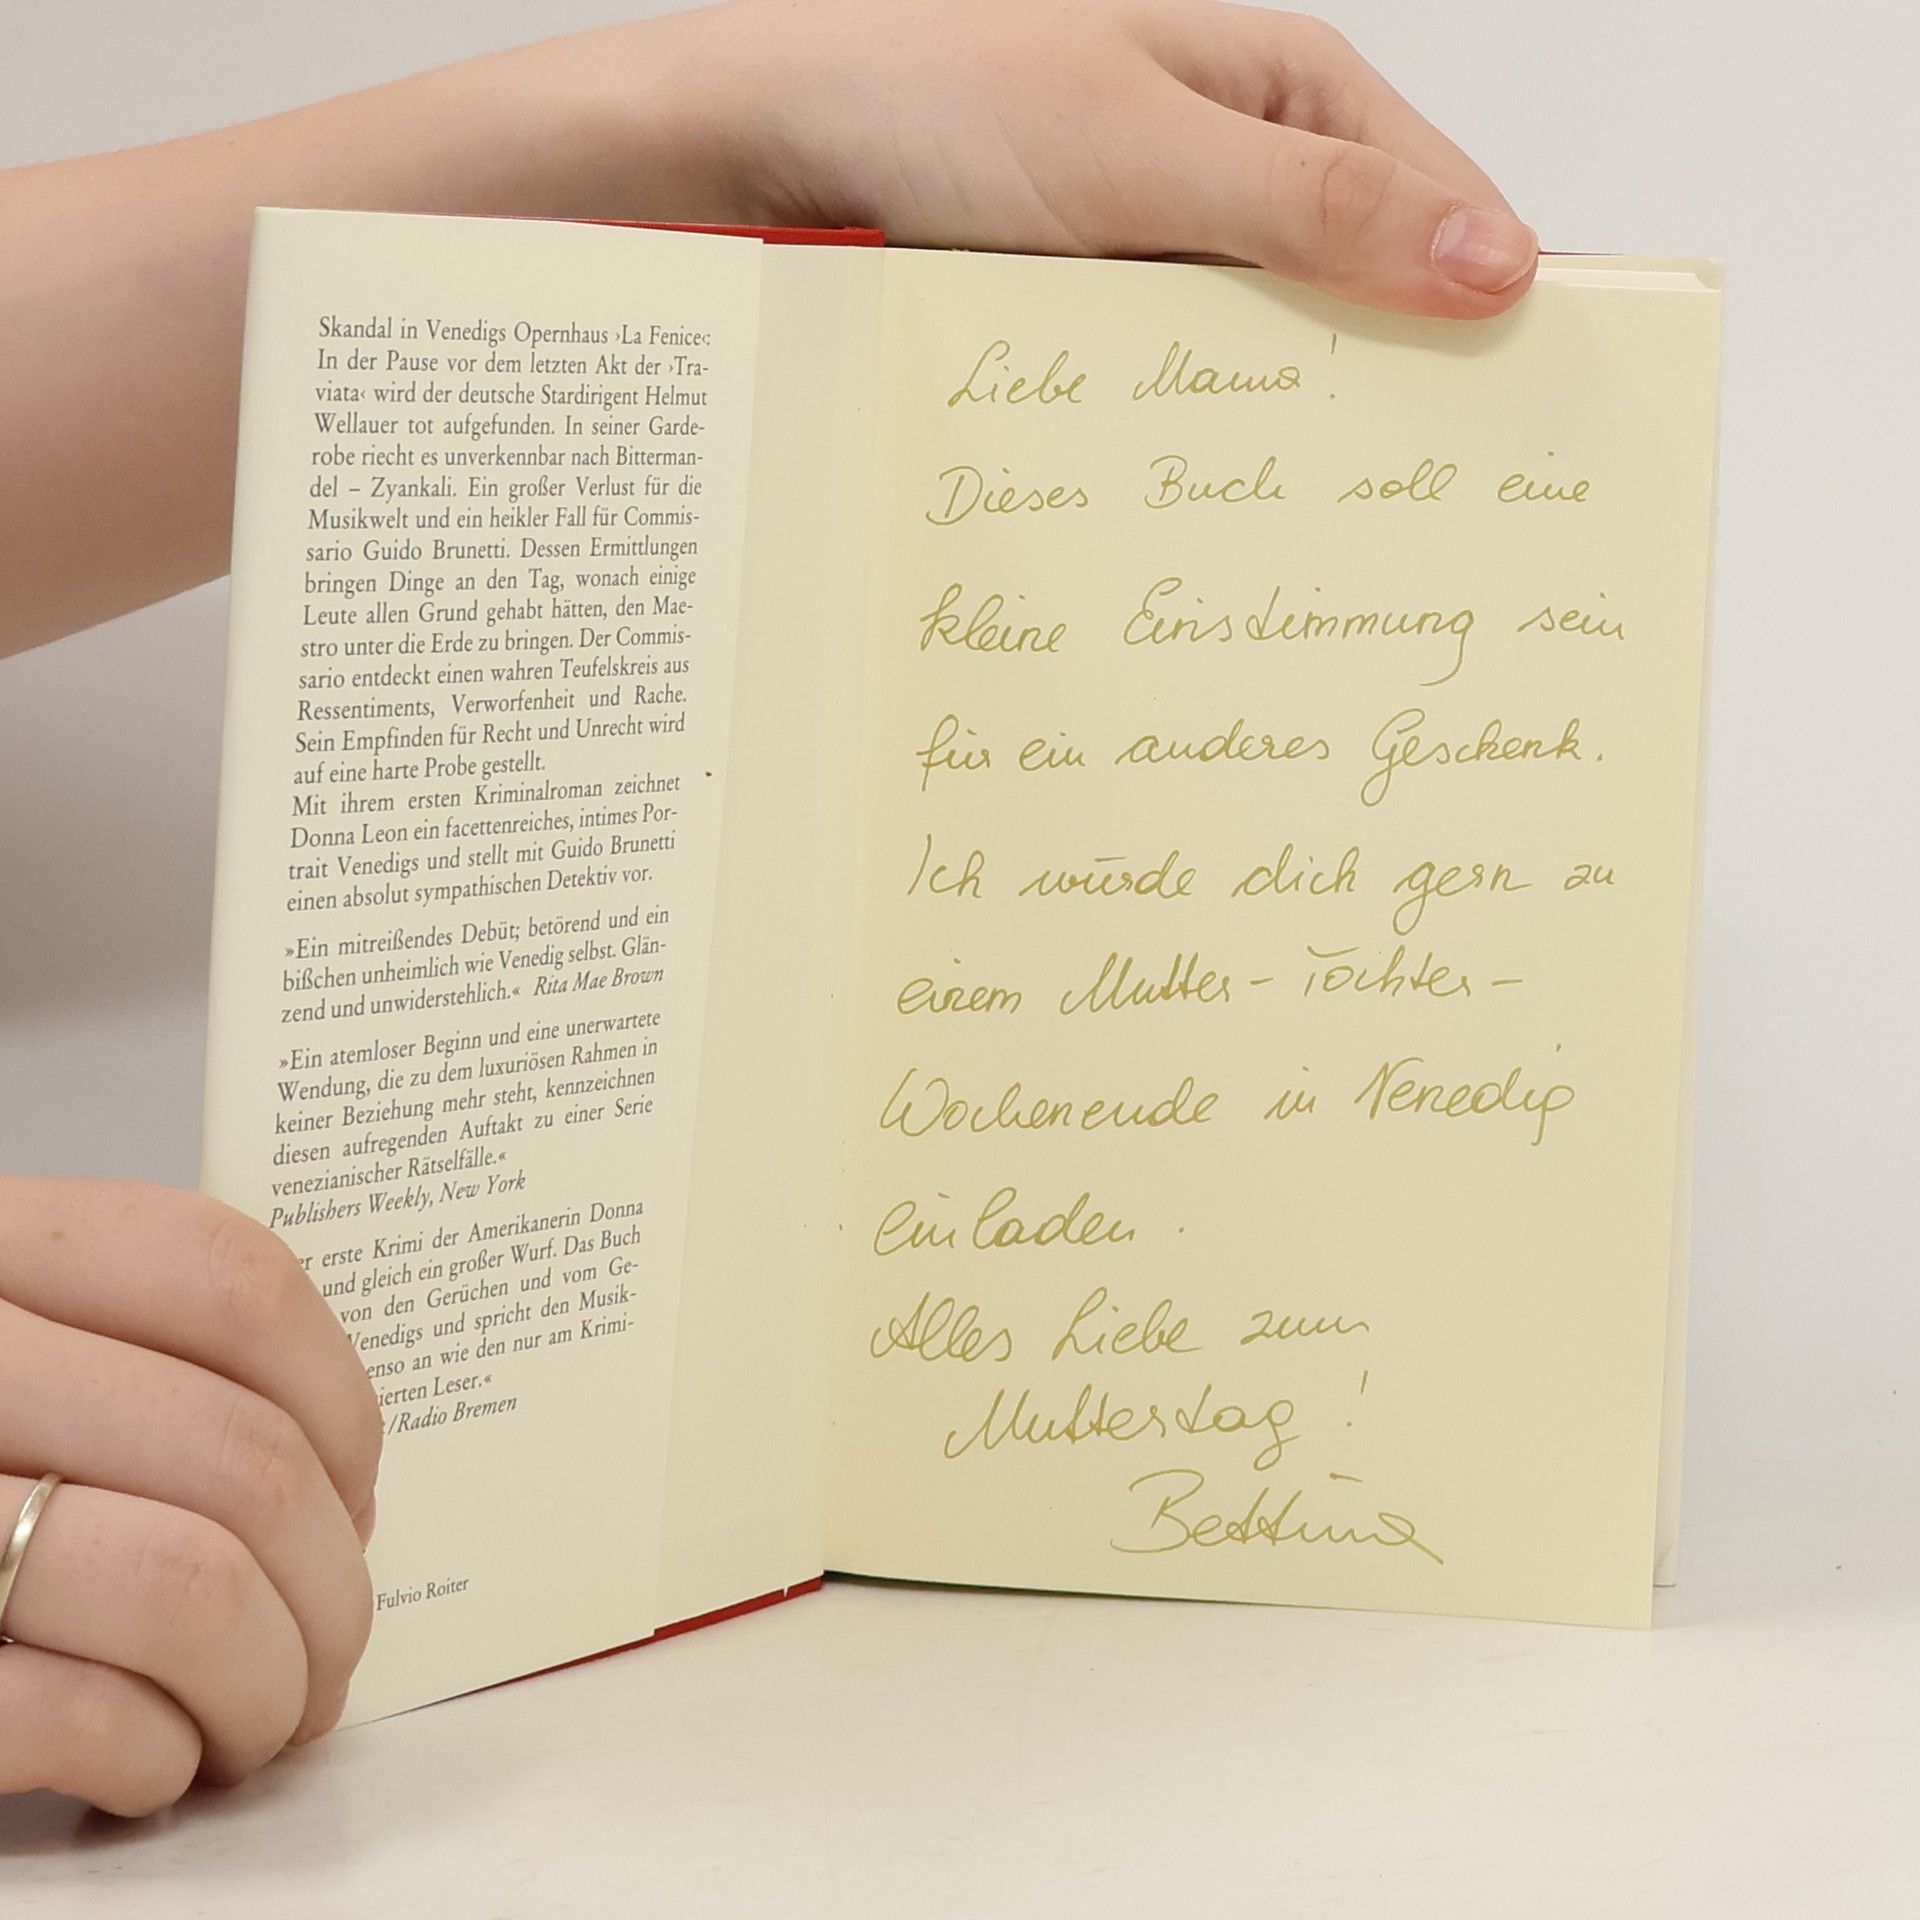 Skandal in Venedigs Opernhaus ›La Fenice‹:
In der Pause vor dem letzten Akt der ›Tra-
viata‹ wird der deutsche Stardirigent Helmut
Wellauer tot aufgefunden. In seiner Garde-
robe riecht es unverkennbar nach Bitterman-
del – Zyankali. Ein großer Verlust für die
Musikwelt und ein heikler Fall für Commis-
sario Guido Brunetti. Dessen Ermittlungen
bringen Dinge an den Tag, wonach einige
Leute allen Grund gehabt hätten, den Mae-
stro unter die Erde zu bringen. Der Commis-
sario entdeckt einen wahren Teufelskreis aus
Ressentiments, Verworfenheit und Rache.
Sein Empfinden für Recht und Unrecht wird
auf eine harte Probe gestellt.
Mit ihrem ersten Kriminalroman zeichnet
Donna Leon ein facettenreiches, intimes Por-
trait Venedigs und stellt mit Guido Brunetti
einen absolut sympathischen Detektiv vor.
»Ein mitreißendes Debüt; betörend und ein
bißchen unheimlich wie Venedig selbst. Glän-
zend und unwiderstehlich.« Rita Mae Brown
»Ein atemloser Beginn und eine unerwartete
Wendung, die zu dem luxuriösen Rahmen in
keiner Beziehung mehr steht, kennzeichnen
diesen aufregenden Auftakt zu einer Serie
venezianischer Rätselfälle.«
Publishers Weekly, New York
er erste Krimi der Amerikanerin Donna
und gleich ein großer Wurf. Das Buch
von den Gerüchen und vom Ge-
Venedigs und spricht den Musik-
enso an wie den nur am Krimi-
ierten Leser.«
/Radio Bremen
Fulvio Roiter
Liebe Mama!
Dieses Buch soll eine
kleine Einstimmung sein
für ein anderes Geschenk.
Ich würde dich gern zu
einem Mutter-Töchter-
Wochenende in Venedig
einladen.
Alles Liebe zum
Muttertag!
Bettina